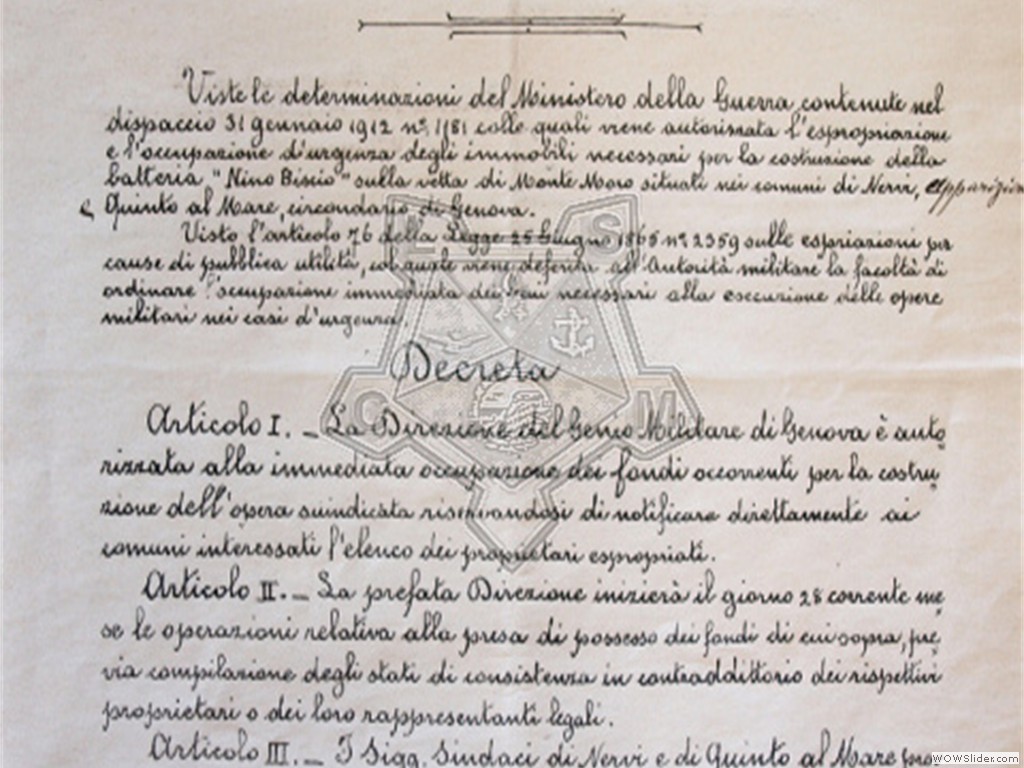 Viste le determinazioni del Ministero della Guerra contenute nel
dispaccio 31 gennaio 1912 n° 1181 colle quali viene autorizzata l'espropriazione
e l'occupazione d'urgenza degli immobili necessari per la costruzione della
batteria "Nino Bixio" sulla vetta di Monte Moro situati nei comuni di Nervi, Apparizione
e Quinto al Mare, circondario di Genova.
Visto l'articolo 76 della Legge 25 Giugno 1865 n° 2359 sulle espriazioni per
cause di pubblica utilità, col quale viene deferita all'Autorità militare la facoltà di
ordinare l'occupazione immediata dei beni necessari alla esecuzione delle opere
militari nei casi d'urgenza.
Decreta
Articolo I. – La Direzione del Genio Militare di Genova è auto
rizzata alla immediata occupazione dei fondi occorrenti per la costru
zione dell'opera suindicata riservandosi di notificare direttamente ai
comuni interessati l'elenco dei proprietari espropriati.
Articolo II. – La prefata Direzione inizierà il giorno 28 corrente me
se le operazioni relativa alla presa di possesso dei fondi di cui sopra, pre
via compilazione degli stati di consistenza in contraddittorio dei rispettivi
proprietari o dei loro rappresentanti legali.
Articolo III. – I Sigg. Sindaci di Nervi e di Quinto al Mare pro
S
C M
WOWSlider.com